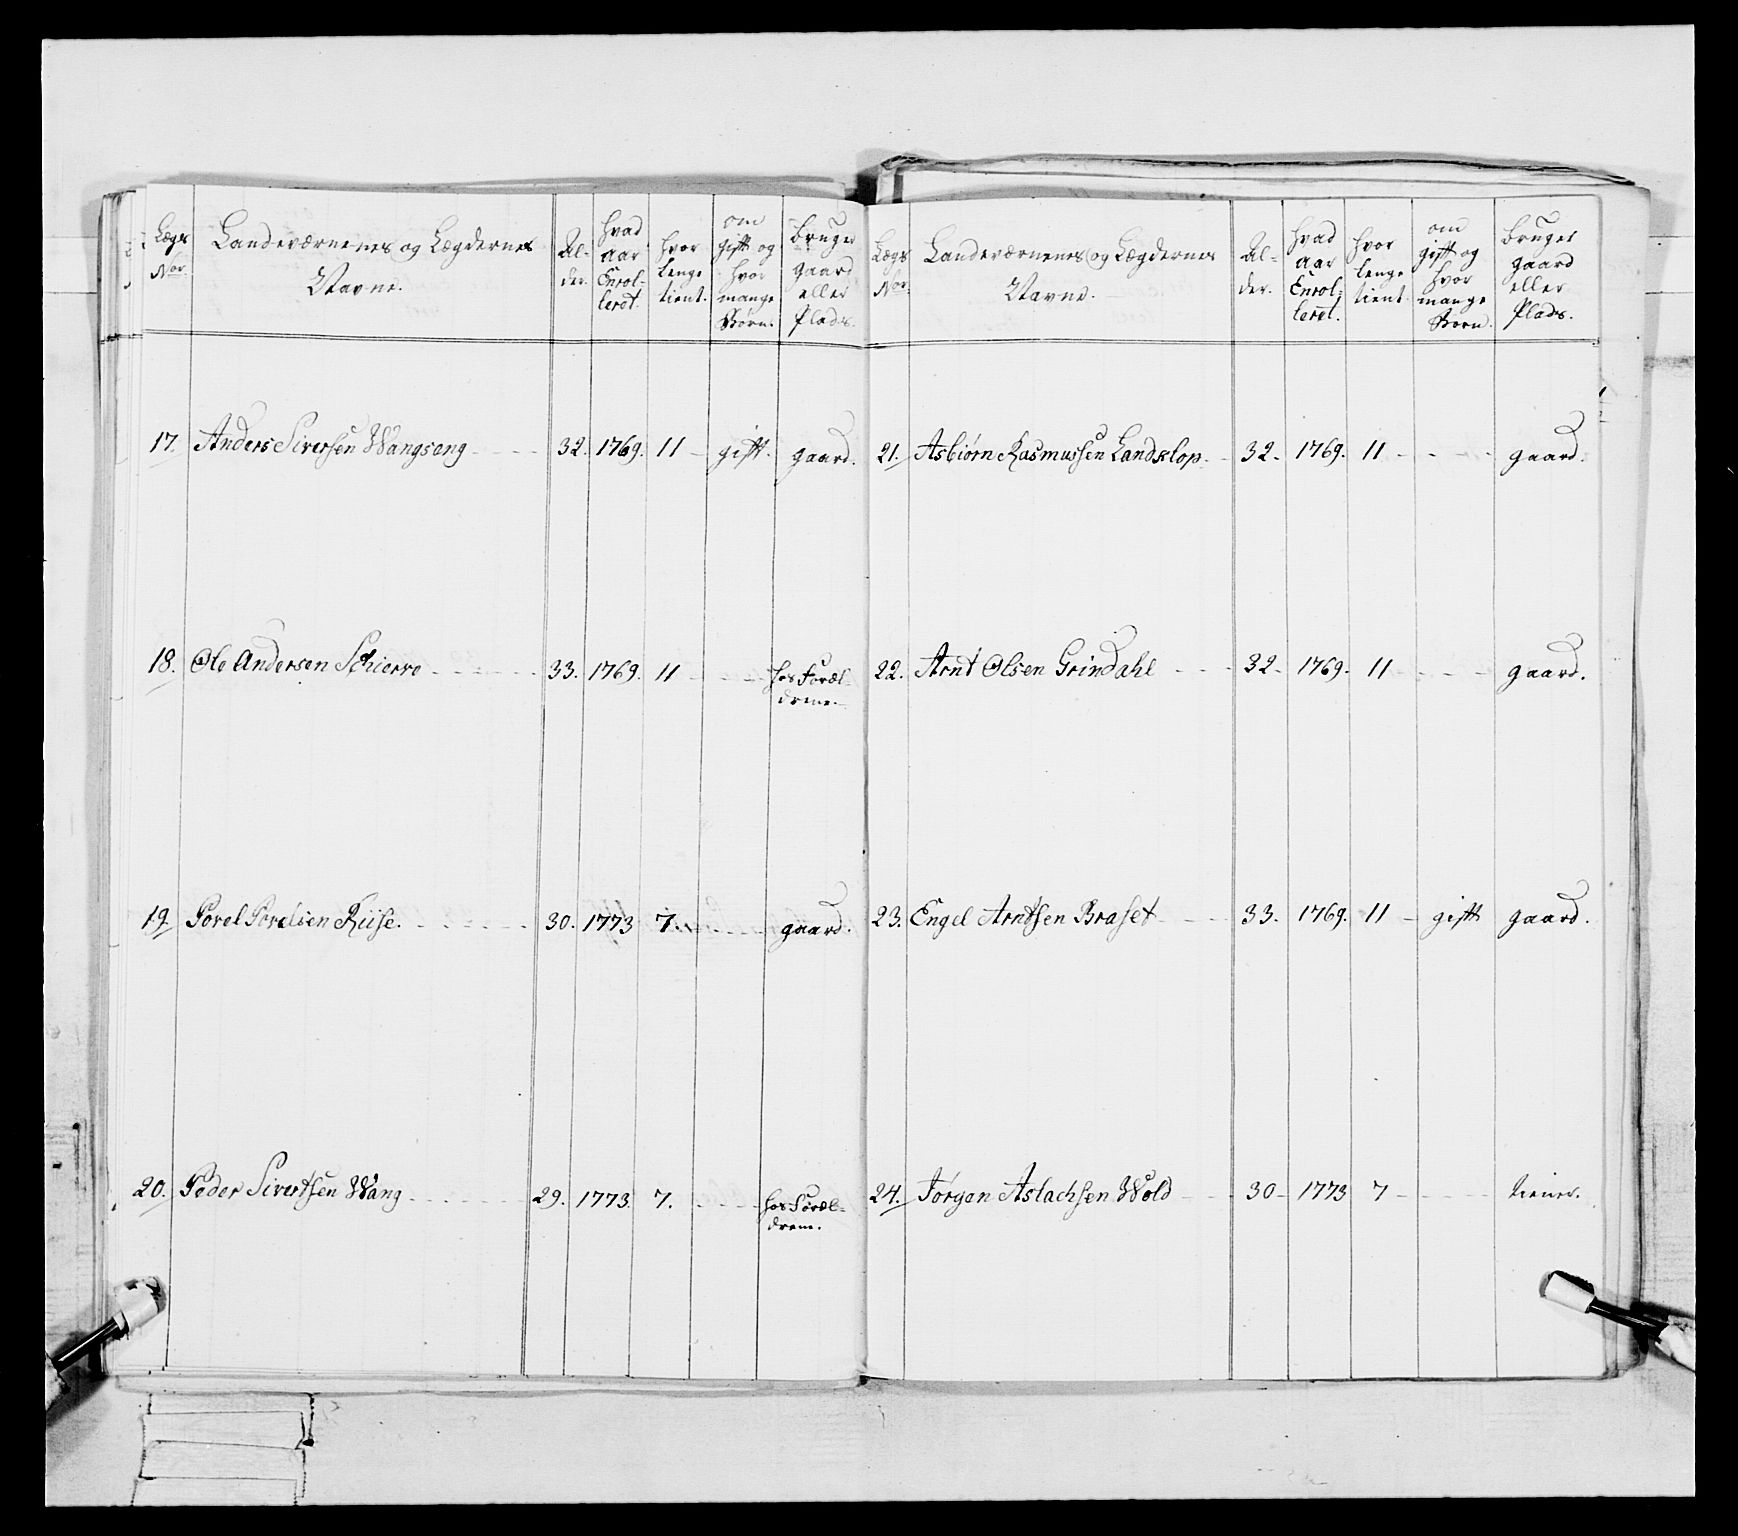 Lægs Nor.
Landeværnenes og Lægdernes Navne.
Alder.
hvad Aar Enrolleret.
hvor lenge tient.
om gift og hvor mange Børn.
bruger gaard eller Plads.
17. Anders Siversen Wangseng 32. 1769. 11 gift. gaard.
18. Ole Andersen Schierve 33. 1769. 11 hos Foræl-
drene.
19. Povel Povelsen Riise. 30. 1773 7. gaard.
20. Peder Sivertsen Wang 29. 1773. 7. hos Foræl-
drene.
Lægs Nor.
Landeværnenes og Lægdernes Navne.
Alder.
hvad Aar Enrolleret.
hvor lenge tient.
om gift og hvor mange Børn.
bruger gaard eller Plads.
21. Asbiørn Rasmussen Landslop 32. 1769. 11 gaard.
22. Arnt Olsen Grindahl 32. 1769. 11 gaard.
23. Engel Arntsen Brasset 33. 1769. 11 gift gaard.
24. Jørgen Aslachsen Wold 30 1773 7 tiener.